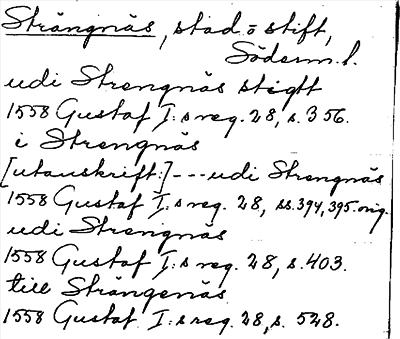 Strängnäs, stad o stift,
Söderm. l.
udi Strengnäs stigtt
1558 Gustaf I:s reg. 28, s. 356.
i Strengnäs
[utanskrift:] --- udi Strengnäs
1558 Gustaf I:s reg. 28, ss. 394, 395. orig.
udi Strengnäs
1558 Gustaf I:s reg. 28, s. 403.
till Strängenäs
1558 Gustaf I:s reg. 28, s. 528.